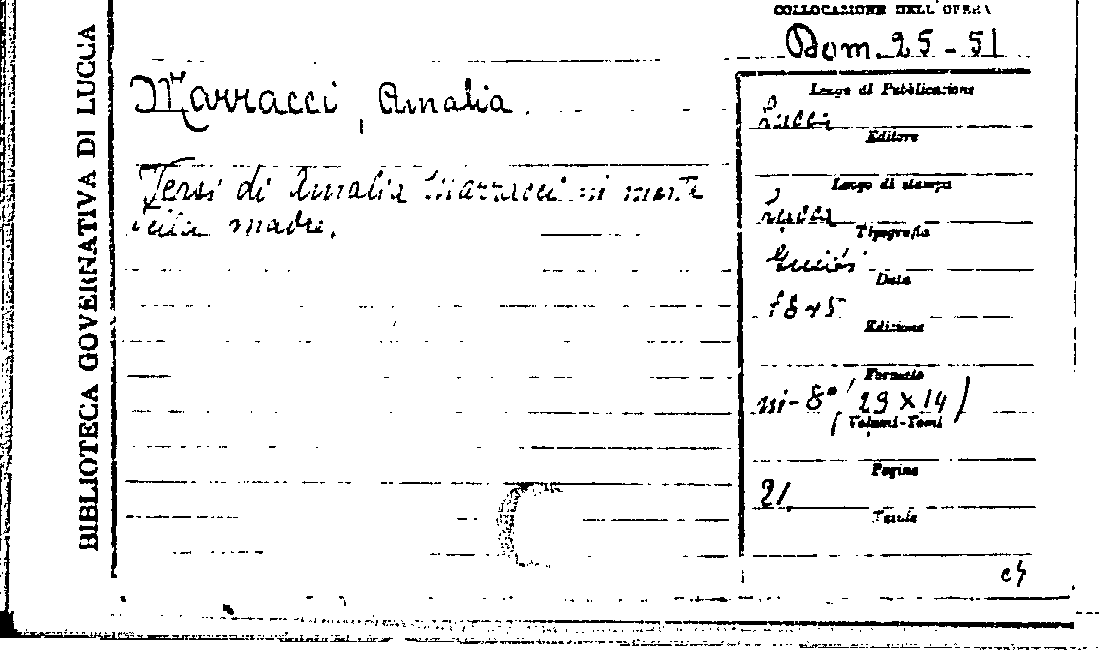 COLLOCAZIONE DELL'OPERA
Dom. 25-51
BIBLIOTECA GOVERNATIVA DI LUCCA
Marracci, Amalia.
Versi di Amalia Marracci in morte
della madre.
Luogo di Pubblicazione
Lucca
Editore
Luogo di stampa
Lucca
Tipografia
Data
1845
Edizione
Formato
in-8° (29 x 14)
Volumi-Tomi
Pagine
21.
Tavole